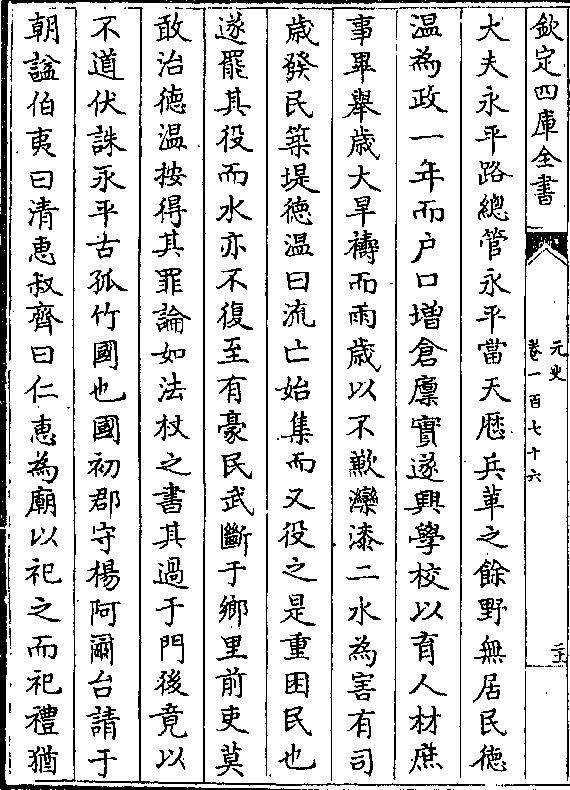 欽定四庫全書
元史
卷一百七十六
大夫永平路總管永平當天厯兵革之餘野無居民德
温為政一年而户口增倉廪實遂興學校以育人材庶
事畢舉歲大旱禱而雨歲以不歉灤漆二水為害有司
歲發民築堤德温曰流亡始集而又役之是重困民也
遂罷其役而水亦不復至有豪民武斷于鄉里前吏莫
敢治德温按得其罪論如法杖之書其過于門後竟以
不道伏誅永平古孤竹國也國初郡守楊阿爾台請于
朝諡伯夷曰清惠叔齊曰仁惠為廟以祀之而祀禮猶